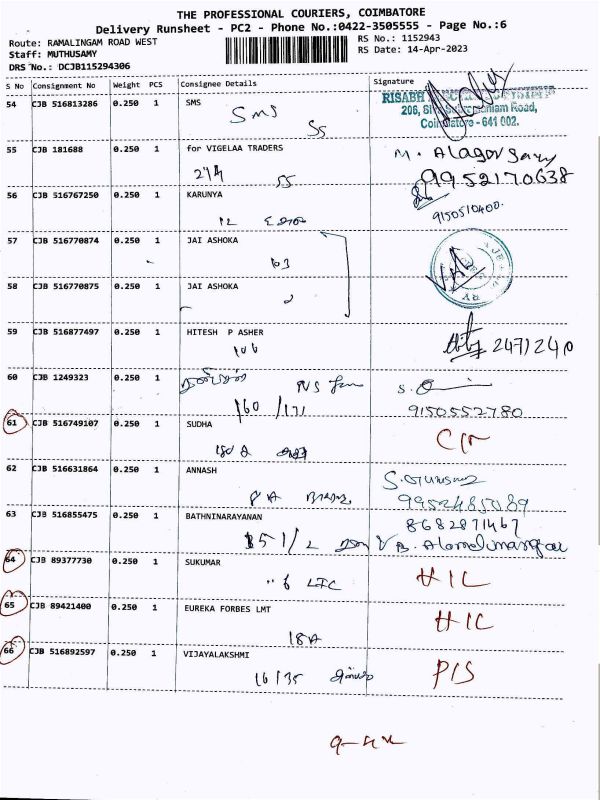 THE PROFESSIONAL COURIERS, COIMBATORE
Delivery Runsheet - PC2 - Phone No.:0422-3505555 - Page No.:6
Route: RAMALINGAM ROAD WEST
RS No.: 1152943
Staff: MUTHUSAMY
RS Date: 14-Apr-2023
DRS No.: DCJB115294306
S No Consignment No Weight PCS Consignee Details Signature
54 CJB 516813286 0.250 1 SMS
SMS
SS
Coimbatore - 641 002.
55 CJB 181688 0.250 1 for VIGELAA TRADERS
274 SS
9952170638
56 CJB 516767250 0.250 1 KARUNYA
12
9150510400
57 CJB 516770874 0.250 1 JAI ASHOKA
63
58 CJB 516770875 0.250 1 JAI ASHOKA
59 CJB 516877497 0.250 1 HITESH P ASHER
106
2471240
60 CJB 1249323 0.250 1
160 / 171
9150552780
61 CJB 516749107 0.250 1 SUDHA
180 A
62 CJB 516631864 0.250 1 ANNASH
8 A
9952485089
63 CJB 516855475 0.250 1 BATHNINARAYANAN
8682871467
151/2
64 CJB 89377730 0.250 1 SUKUMAR
6 LIC
HIC
65 CJB 89421400 0.250 1 EUREKA FORBES LMT
18A
HIC
66 CJB 516892597 0.250 1 VIJAYALAKSHMI
16/35
P/S